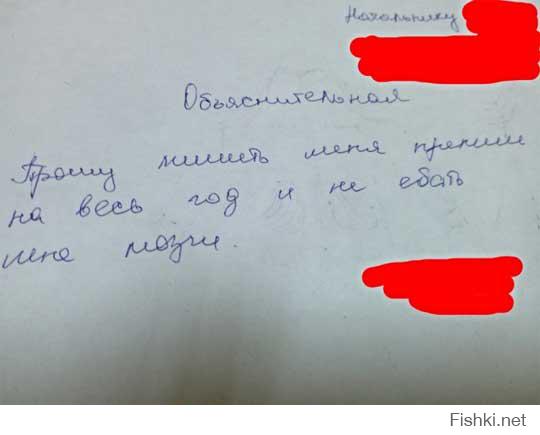 Начальнику
Объяснительная
Прошу лишить меня премии
на весь год и не ебать
мне мозги.
Fishki.net